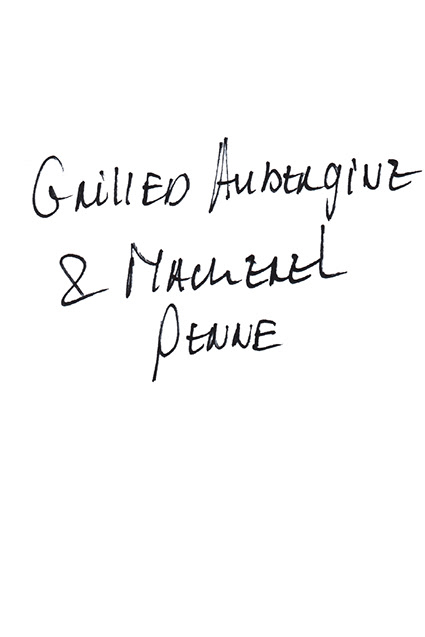 Grilled Aubergine
& Mackerel
Penne